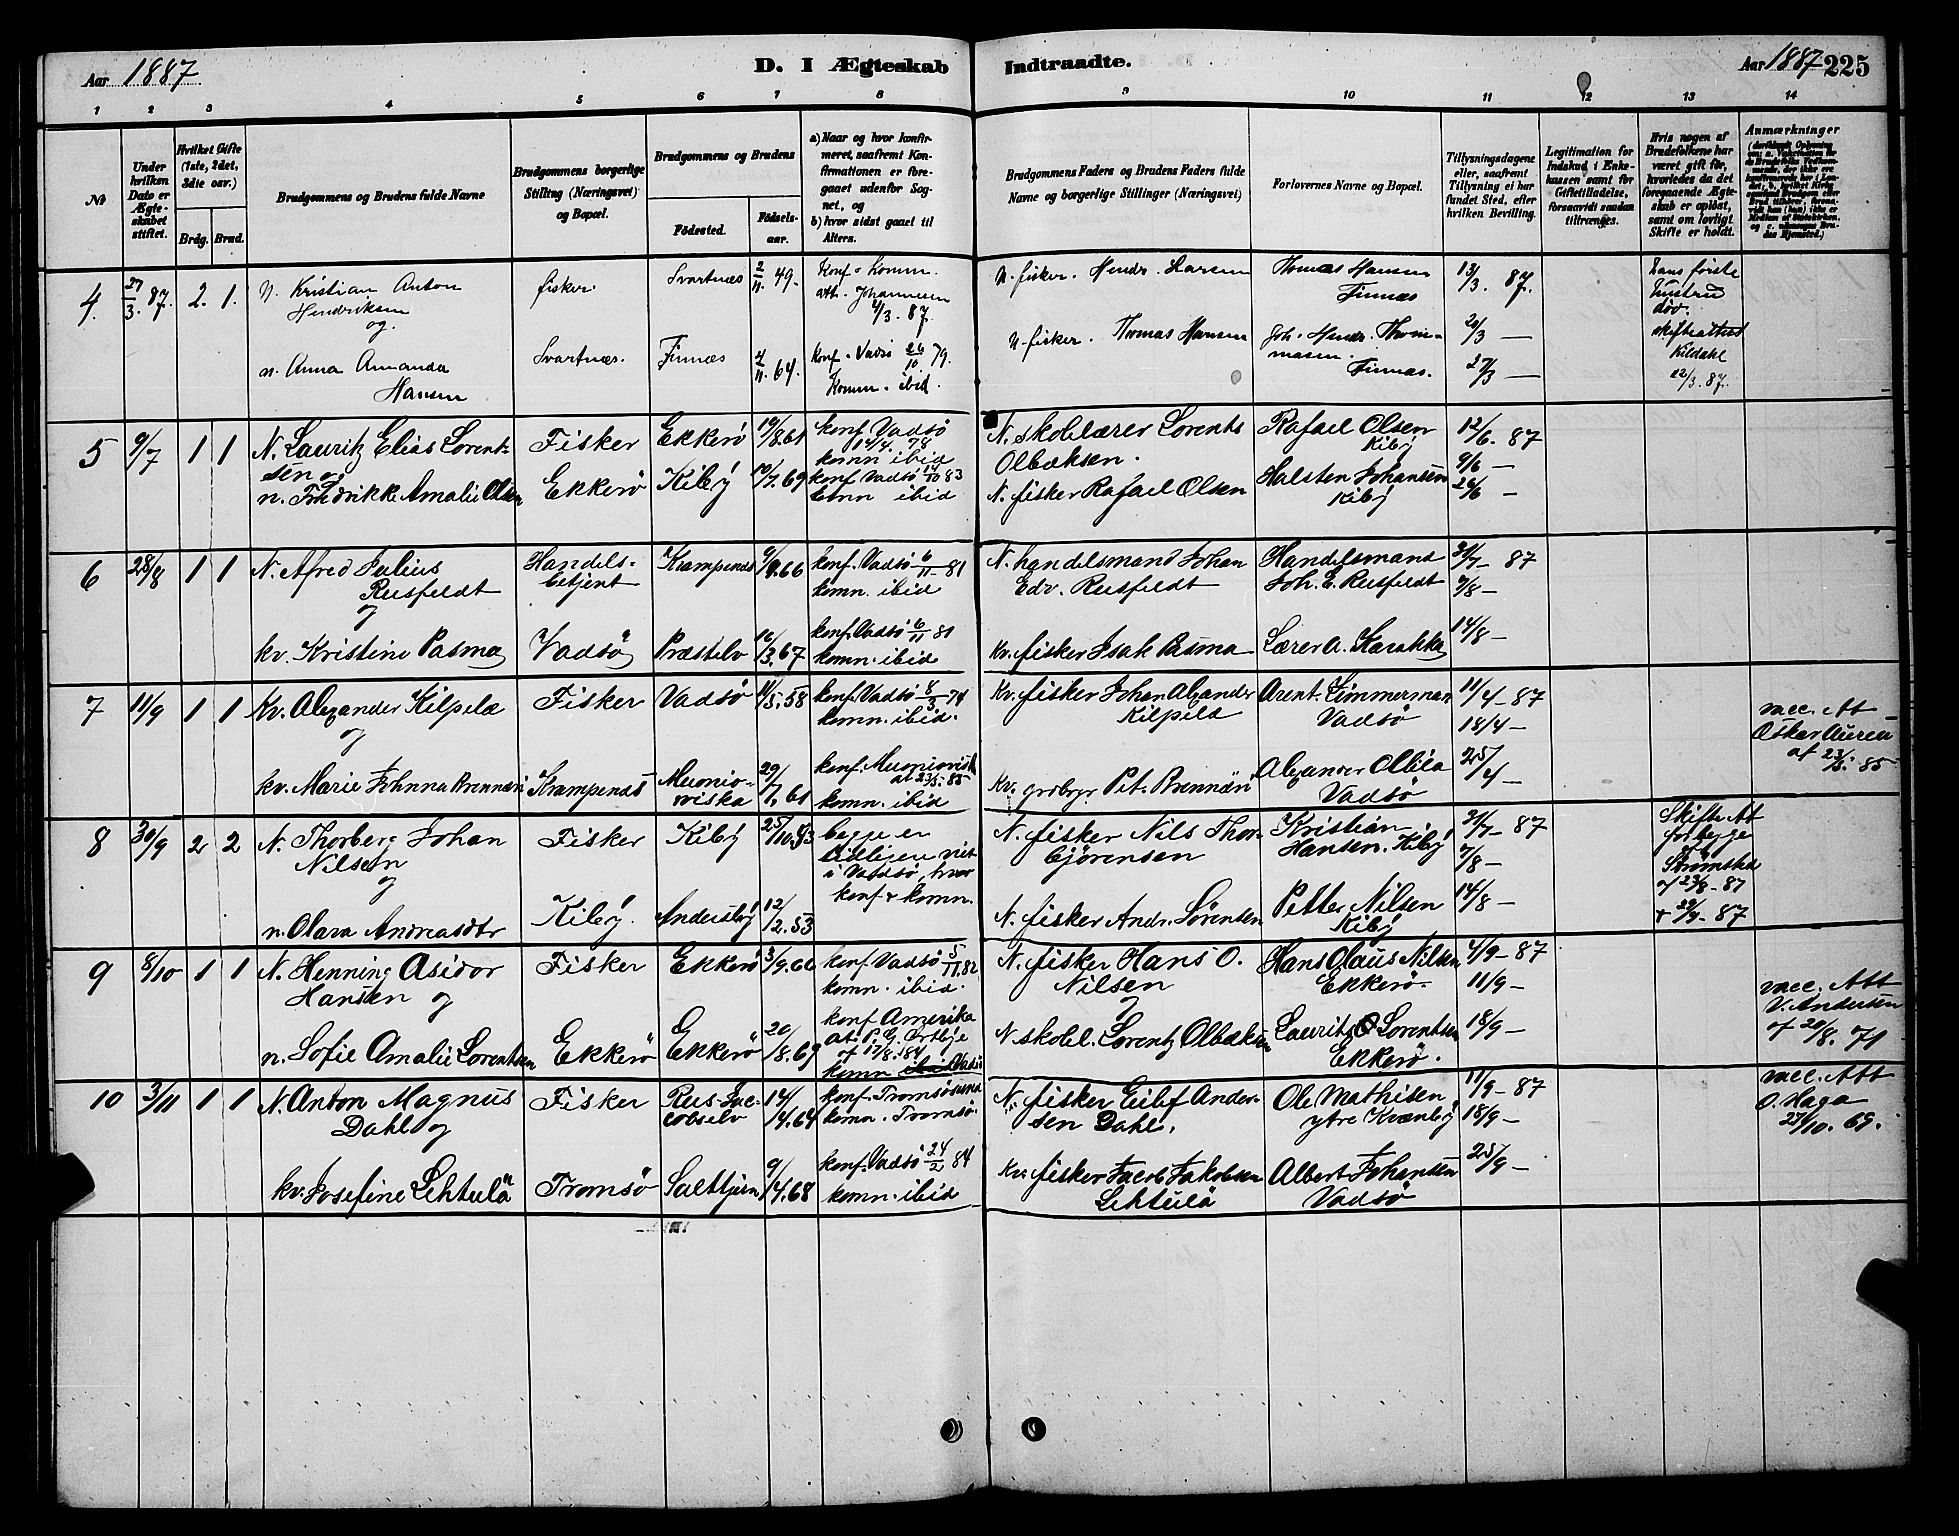 Aar 1887
D. I Ægteskab
Indtraadte.
Aar 1887 225
1 2 3 4 5 6 7 8 9 10 11 12 13 14
№
Under hvilken Dato er Ægteskabet stiftet.
Hvilket Gifte (1ste, 2det, 3die osv.)
Brdg. Brud.
Brudgommens og Brudens fulde Navne
Brudgommens borgerlige Stilling (Næringsvei) og Bopæl.
Brudgommens og Brudens
Fødested.
Fødselsaar.
a) Naar og hvor konfirmeret, saafremt Konfirmationen er foregaaet udenfor Sognet, og
b) hvor sidst gaaet til Alters.
Brudgommens Faders og Brudens Faders fulde Navne og borgerlige Stillinger (Næringsvei)
Forlovernes Navne og Bopæl.
Tillysningsdagene eller, saafremt Tillysning ei har fundet Sted, efter hvilken Bevilling.
Legitimation for Indskud i Enkekassen samt for Giftetilladelse, forsaavidt saadan tiltrænges.
Hvis nogen af Brudefolkene har været gift før, hvorledes da det foregaaende Ægteskab er opløst, samt om lovligt Skifte er holdt.
Anmærkninger
4. 27/3. 87. 2. 1.
N. Kristian Anton
Hendriksen
og.
n. Anna Amanda
Hansen
fisker.
Svartnæs.
Svartnæs 2/11. 49.
Finnæs 4/11. 64.
Konf. Komm.
att. Johannesen
4/3. 87.
Konf. Vadsö 26/10 79.
Komm. ibid.
N. fisker. Hendr. Larsen
N. fisker. Thomas Hansen
Thomas Hansen
Finnæs
Joh. Hendr. Thommasen.
Finnæs.
13/3. 87.
20/3 —
27/3 —
Hans første
hustru
død.
skifteattest
Kildahl
12/3. 87.
5 9/7 1 1
N. Lauritz Elias Lorentsen og
n. Fredrikke Amalie Olsen
Fisker
Ekkerö
Ekkerö 19/8.61
Kiby 10/7. 69
konf Vadsö
14/4. 78
komn ibid
konf Vadsö 14/10 83
komn ibid
N. skolelærer Lorents
Olbæksen.
N. fisker Rafael Olsen
Rafael Olsen
Kiby
Halsten Johansen
Kiby
12/6. 87
9/6 —
26/6 —
6 28/8 1 1
N. Alfred Julius
Rusfeldt
og
kv. Kristine Pasma
Handelsbetjent
Vadsö
Krampenæs 9/9.66
Præstelv 16/3.67
konf. Vadsö 6/11 81
komn. ibid
konf. Vadsö 6/11 81
komn. ibid
N. handelsmand Johan
Edv. Rusfeldt
kv. fisker Isak Pasma
Handelsmand
Joh. E. Rusfeldt
Lærer A. Karakka
31/7 — 87
7/8 —
14/8 —
7 11/9 1 1
Kv. Alexander Kilpelæ
og
kv. Marie Johnna Brennæri
Fisker
Krampenæs
Vadsö 11/5.58
Muonioniska 29/7.61
konf. Vadsö 8/3 74
komn. ibid.
konf. Muonionisk
at 23/5. 85
komn. ibid
Kv. fisker Johan Alexander
Kilpelä
Kv. grdbrgr Pet. Brennäri
Arent Zimmerman
Vadsö
Alexander Ollila
Vadsö
11/4 — 87
18/4 —
25/4 —
vacc. Att
Oskar Auren
af 23/5. 85
8 30/9 2 2
N. Thorberg Johan
Nilsen
og
n. Olara Andreasdtr
Fisker
Kiby.
Kiby 25/10.53
Andersby 12/2.53
begge er
tidligere viet
i Vadsö, hvor
konf & komn.
N. fisker Nils Thorbjörensen
N. fisker Andr. Sörensen
Kristian
Hansen. Kiby
Petter Nilsen
Kiby
31/7 — 87
7/8 —
14/8 —
Skifte Att
for begge
Strømsted
af 23/8 — 87
& 29/9 — 87
9 8/10 1 1
N. Henning Asidor
Hansen og
n. Sofie Amalie Lorentsen
Fisker
Ekkerö
Ekkerö 3/9.66
Ekkerö 20/8.69
konf Vadsö 5/11.82
komn. ibid.
konf Amerika
at. P. G. Østbye
af 17/8. 84
komn ibid Vadsö
N. fisker Hans O.
Nilsen
og
N. skolel. Lorentz Olbæksen
Hans Olaus Nilsen
Ekkerö.
Laurits O Lorentsen
Ekkerö.
4/9 — 87
11/9 —
18/9 —
vacc. Att
V. Andersen
af 20/8. 71
10 3/11 1 1
N. Anton Magnus
Dahl og
kv. Josefine Lehtulä
Fisker
Tromsö
Rus-Jaccobselv 14/4.64
Saltfjern 9/4.68
konf. Tromsösund
komn. Tromsö.
konf. Vadsö 24/2 84
komn. ibid
N. fisker Eilef Andersen Dahl.
Kv. fisker Jacob Jakobsen
Lehtulä
Ole Mathisen
ytre Kvænby
Albert Johansen
Vadsö
11/9 — 87
18/9 —
25/9 —
vacc. Att
O. Haga
27/10. 69.